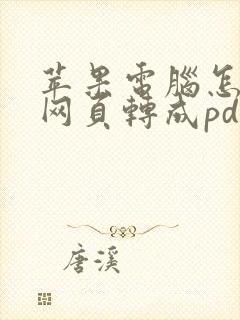 苹果電腦怎
网頁轉成pd
唐溪